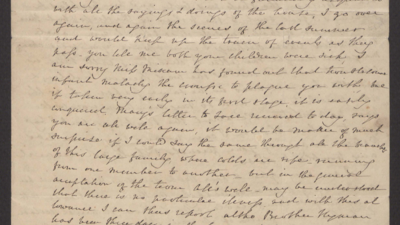 with all the sayings & doings of the house, I go over
again, and again the scenes of the last summer
and would keep up the touch of events as they
pass. you tell me both your children were sick I
am sorry that Miss has found out that troublesome
infant malady the croup to plague you with me
if taken very early in its first stage, it is easily
Mary's letter to received to day, says
you are all well again, it would be matter of much
surprise if I could say the same through all the branches
of this large family, where colds are rife, running
from one member to another, but in the general
acceptation of the term All's well, may be understood
that there is no particular illness and with this al
lowance I can thus report, altho Brother
has been three days in the